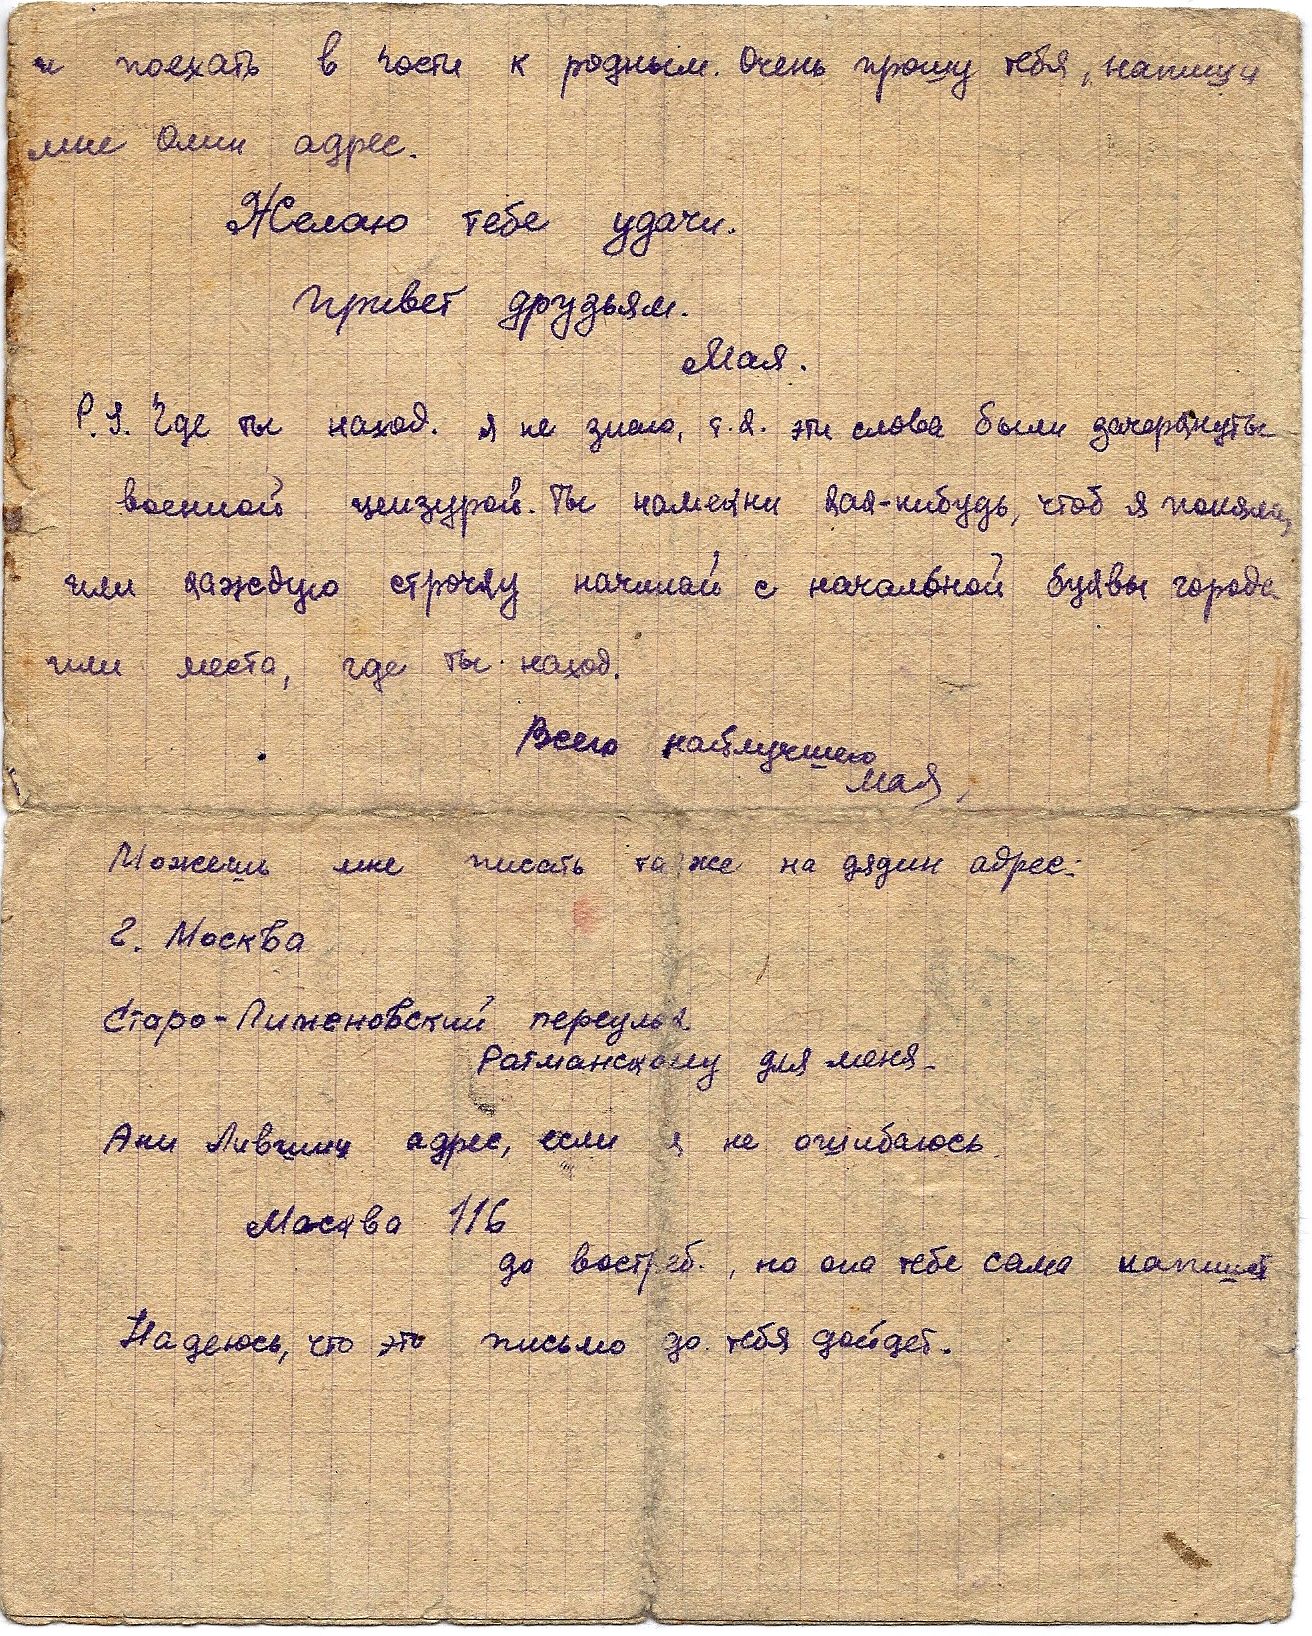 и поехать в гости к родным. Очень прошу тебя, напиши
мне Олин адрес.
Желаю тебе удачи.
Привет друзьям.
Мая.
P.S. Где ты наход. я не знаю, т.к. эти слова были зачеркнуты
военной цензурой. Ты намекни как-нибудь, чтоб я поняла,
или каждую строчку начинай с начальной буквы города
или места, где ты наход.
Всего наилучшего
Мая.
Можешь мне писать также на дядин адрес:
г. Москва
Старо-Пименовский переулок
Ратманскому для меня.
Ани Лившиц адрес, если я не ошибаюсь
Москва 116
до востреб., но она тебе сама напишет
Надеюсь, что это письмо до тебя дойдет.